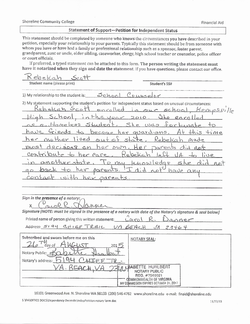 Shoreline Community College Financial Aid
Statement of Support – Petition for Independent Status
This statement should be completed by someone who knows the circumstances you have described in your
petition, especially your relationship to your parents. Typically this statement should be from someone with
whom you have or have had a family or professional relationship such as a sponsor, foster parent,
grandparent, aunt or uncle, older sibling, caseworker, clergy, high school counselor, ride-along officer
or court official.
If preferred, a typed statement can be attached to this form. The person writing the statement must
have it notarized when they sign and date the statement. If you have questions, please contact our office.
Rebekah Scott
Student's name (please print) Student's SID
1) My relationship to the student is: School Counselor
2) My statement supporting the student's petition for independent status based on unusual circumstances:
Rebekah Scott enrolled in our school,
High School, in the year 2010. She enrolled
as a Homeless Student. She was fortunate to
have friends to become her guardians. At this time
her mother lived out of state. Rebekah made
most decisions on her own. Her parents did not
contribute to her care. Rebekah left to live
in another state. To my knowledge she did not
go back to her parents. I did not have any
contact with her parents.
Sign in the presence of a notary.
x Carol R. Danner
Signature (NOTE: must be signed in the presence of a notary with date of the Notary's signature & seal below)
Printed name of person giving this written statement: Carol R. Danner
Address: TRAIL VA BEACH VA 23464
Subscribed and sworn before me on this
26TH of AUGUST NOTARY SEAL
Notary Public
Address
VA. BEACH, VA
NOTARY PUBLIC
COMMONWEALTH OF VIRGINIA
16101 Greenwood Ave. N. Shoreline WA 98133